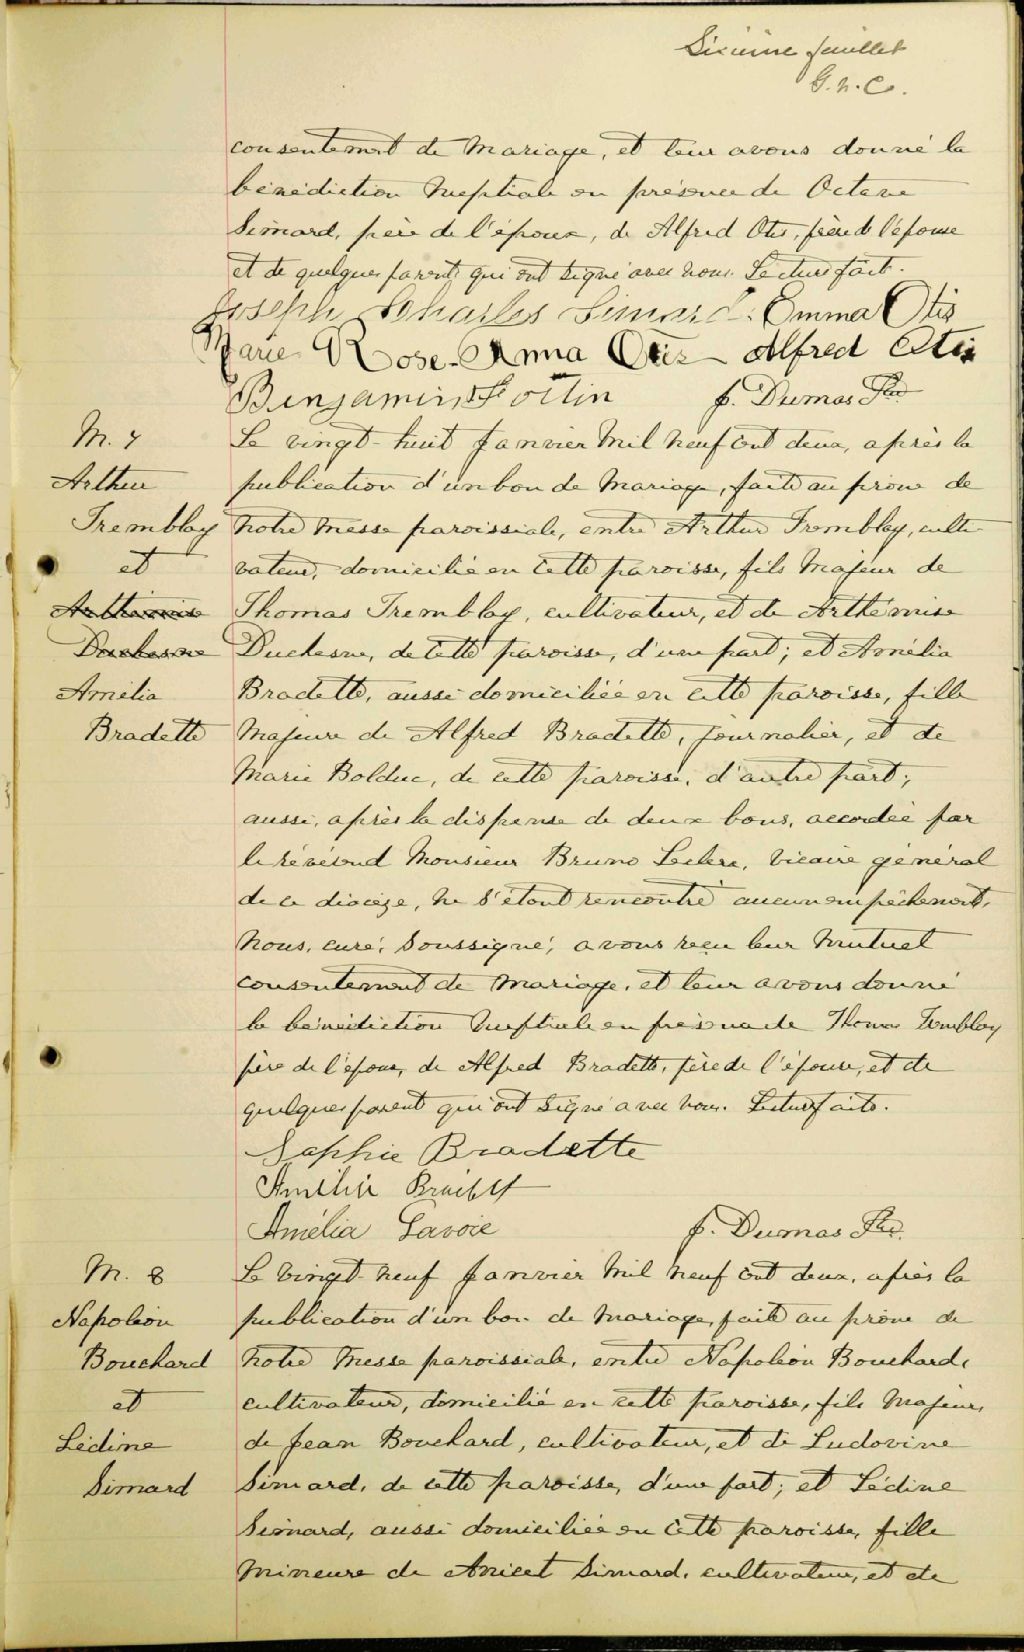 Sixième feuillet
G. N. C.
consentement de mariage, et leur avons donné la
bénédiction nuptiale en présence de Octave
Simard, père de l'époux, de Alfred Otis, frère de l'épouse
et de quelques parents qui ont signé avec nous. Lecture faite.
Joseph Charles Simard. Emma Otis
Marie Rose-Anna Otis Alfred Otis
Benjamin Fortin J. Dumas Ptre
M. 7
Arthur
Tremblay
et
Arthémise
Duchesne
Amélia
Bradette
Le vingt-huit Janvier mil neuf cent deux, après la
publication d'un ban de mariage, faite au prône de
notre messe paroissiale, entre Arthur Tremblay, culti-
vateur, domicilié en cette paroisse, fils majeur de
Thomas Tremblay, cultivateur, et de Arthémise
Duchesne, de cette paroisse, d'une part; et Amélia
Bradette, aussi domiciliée en cette paroisse, fille
majeure de Alfred Bradette, journalier, et de
Marie Bolduc, de cette paroisse, d'autre part;
aussi, après la dispense de deux bans, accordée par
le révérend Monsieur Bruno Leclerc, vicaire général
de ce diocèse, ne s'étant rencontré aucun empêchement,
Nous, curé, soussigné, avons reçu leur mutuel
consentement de mariage, et leur avons donné
la bénédiction nuptiale en présence de Thomas Tremblay
père de l'époux, de Alfred Bradette, père de l'épouse, et de
quelques parent qui ont signé avec nous. Lecture faite.
Sophie Bradette
Amélia
Amélia Savoie J. Dumas Ptre.
M. 8
Napoléon
Bouchard
et
Lédine
Simard
Le vingt-neuf Janvier mil neuf cent deux, après la
publication d'un ban de mariage, faite au prône de
notre messe paroissiale, entre Napoléon Bouchard,
cultivateur, domicilié en cette paroisse, fils majeur,
de Jean Bouchard, cultivateur, et de Ludovine
Simard, de cette paroisse, d'une part; et Lédine
Simard, aussi domiciliée en cette paroisse, fille
mineure de Anicet Simard, cultivateur, et de